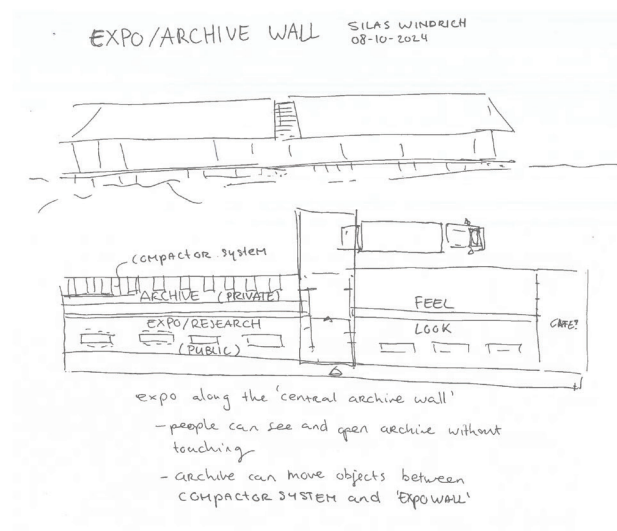 EXPO/ARCHIVE WALL
SILAS WINDRICH
08-10-2024
COMPACTOR SYSTEM
ARCHIVE (PRIVATE)
EXPO/RESEARCH
(PUBLIC)
FEEL
LOOK
CAFE?
expo along the 'central archive wall'
- people can see and open archive without
touching
- archive can move objects between
COMPACTOR SYSTEM and 'EXPOWALL'